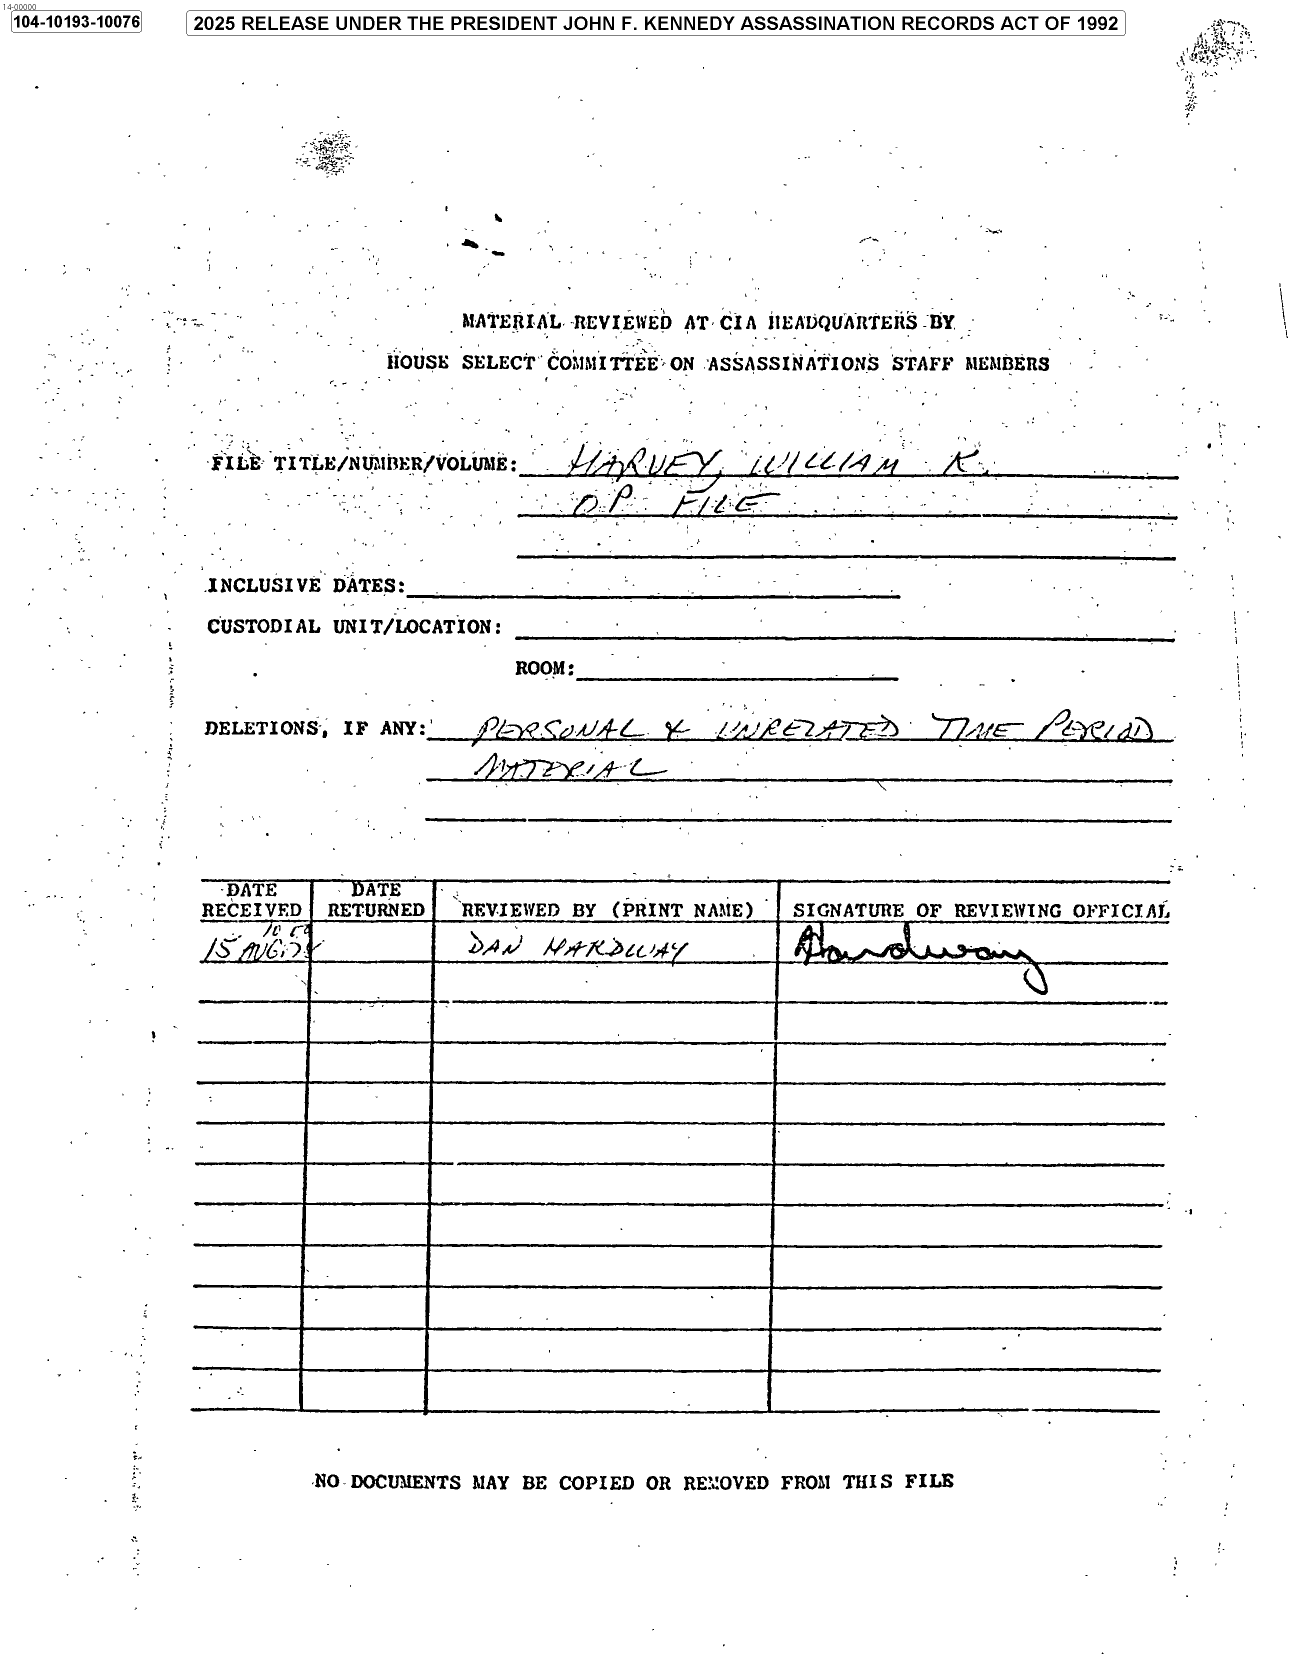 14-00000
104-10193-10076
2025 RELEASE UNDER THE PRESIDENT JOHN F. KENNEDY ASSASSINATION RECORDS ACT OF 1992
MATERIAL REVIEWED AT CIA HEADQUARTERS BY
HOUSE SELECT COMMITTEE ON ASSASSINATIONS STAFF MEMBERS
FILE TITLE/NUMBER/VOLUME: HARVEY, WILLIAM K.
OP FILE
INCLUSIVE DATES:
CUSTODIAL UNIT/LOCATION:
ROOM:
DELETIONS, IF ANY: PERSONAL & UNRELATED TIME PERIOD
MATERIAL
DATE RECEIVED DATE RETURNED REVIEWED BY (PRINT NAME) SIGNATURE OF REVIEWING OFFICIAL
15 AUG DAN HARDWAY Hardway
NO DOCUMENTS MAY BE COPIED OR REMOVED FROM THIS FILE